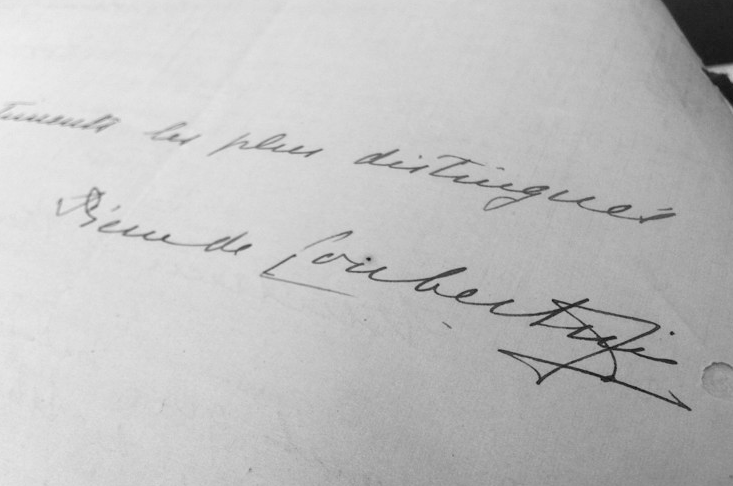 timents les plus distingués
Pierre de Coubertin